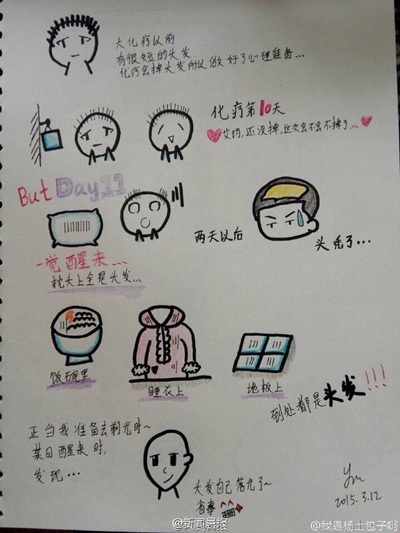 大化疗以前
有很短的头发
化疗会掉头发所以做好了心理准备...
化疗第10天
艾玛,还没掉,这次会不会不掉了...
But Day11
一觉醒来...
枕头上全是头发...
两天以后
头秃了...
饭碗里
睡衣上
地板上
到处都是头发!!!
正当我准备去剃光时~
某日醒来时,
发现...
头发自己落光了~
省事
2015.3.12
@新闻晨报
@我是杨土包子啊